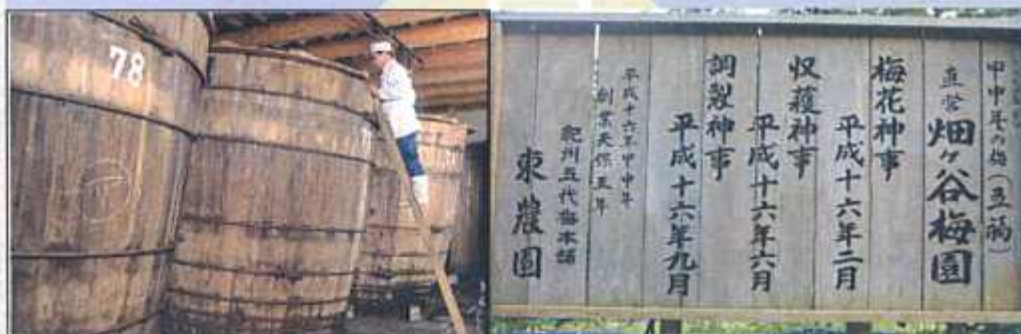 78
甲申年の梅(五福)
直営 畑ヶ谷梅園
梅花神事
平成十六年二月
収穫神事
平成十六年六月
調製神事
平成十六年九月
平成十六年甲申年
創業天保五年
紀州五代梅本舗
東農園